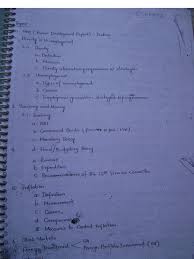 HDR (Human Development Report) - Ranking
Poverty & Unemployment
1.1. Poverty
a. Definition
b. Measure
c. Poverty alleviation programmes or strategies
1.2. Unemployment
a. Types of unemployment
b. Causes
c. Employment generation strategies & programmes
2. Banking and Money
a. RBI
b. Commercial Banks
c. Monetary Policy
d. Fiscal/Budgeting Policy
a. Revenue
b. Expenditure
c. Recommendations of the 13th Finance Commission
Inflation
a. Definition
b. Measurement
c. Causes
d. Consequences
e. Measures to Control Inflation
Stock Markets
Foreign Investment
Foreign Portfolio Investment